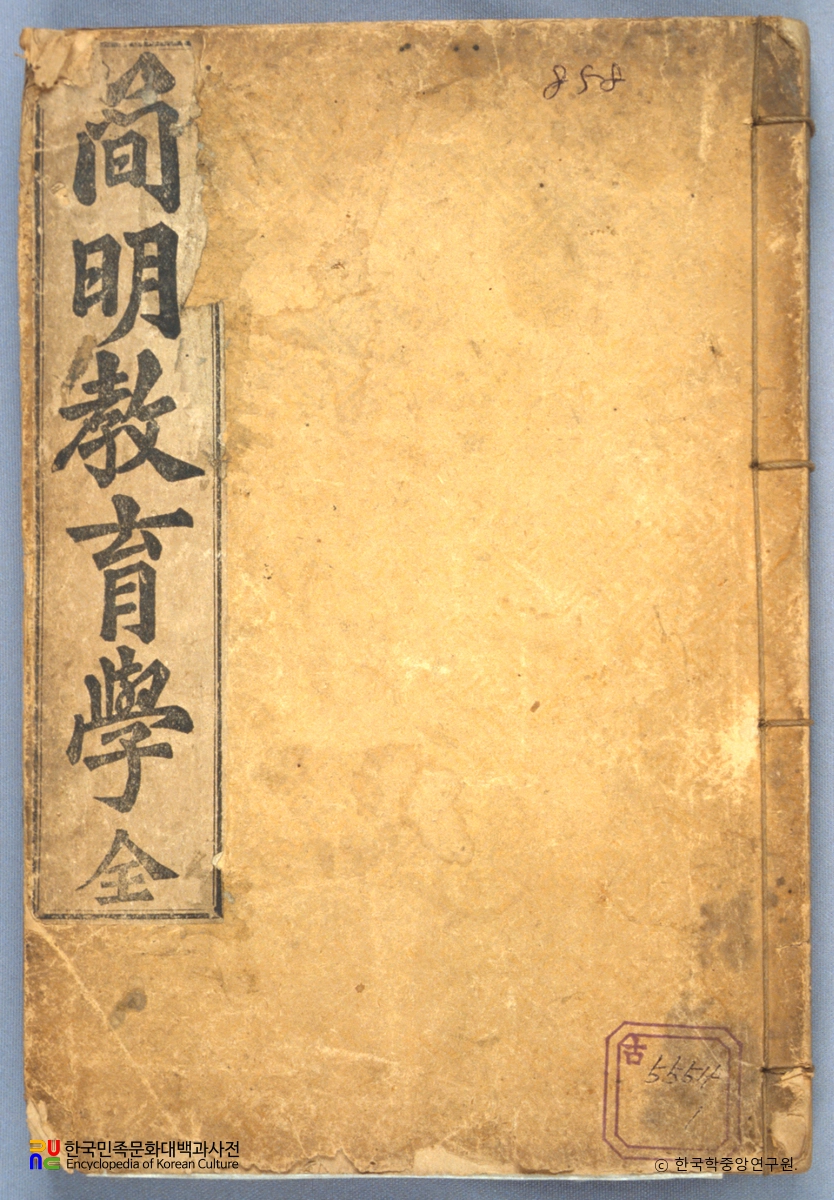 簡明教育學 全
858
古
5554
1
한국민족문화대백과사전
Encyclopedia of Korean Culture
© 한국학중앙연구원.